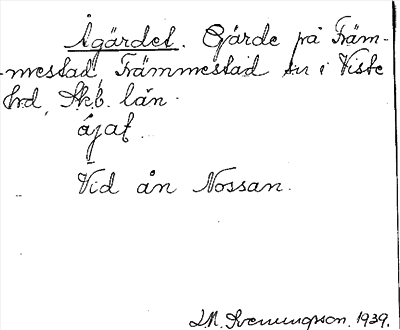 Ågärdet. Gärde på Främ-
mestad, Främmestad sn i Viste
hrd, Skb. län.
åjaḷ.
Vid ån Nossan.
J.M. Svenungsson. 1939.